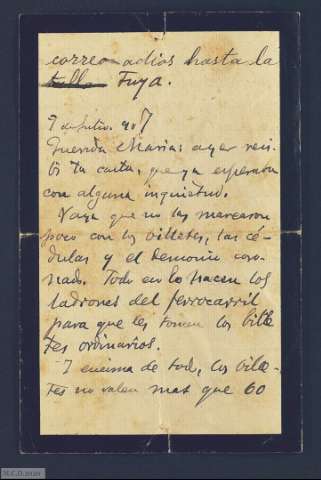 correo adios hasta la
tella Tuya.
7 de Julio. 907
Querida Maria: ayer reci-
bí tu carta, que ya esperaba
con alguna inquietud.
Vaya que no las marearon
poco con los villetes, las cé-
dulas y el demonio coro-
nado. Todo eso lo hacen los
ladrones del ferrocarril
para que les tomen los bille
tes ordinarios.
Y encima de todo, los bille-
tes no valen mas que 60